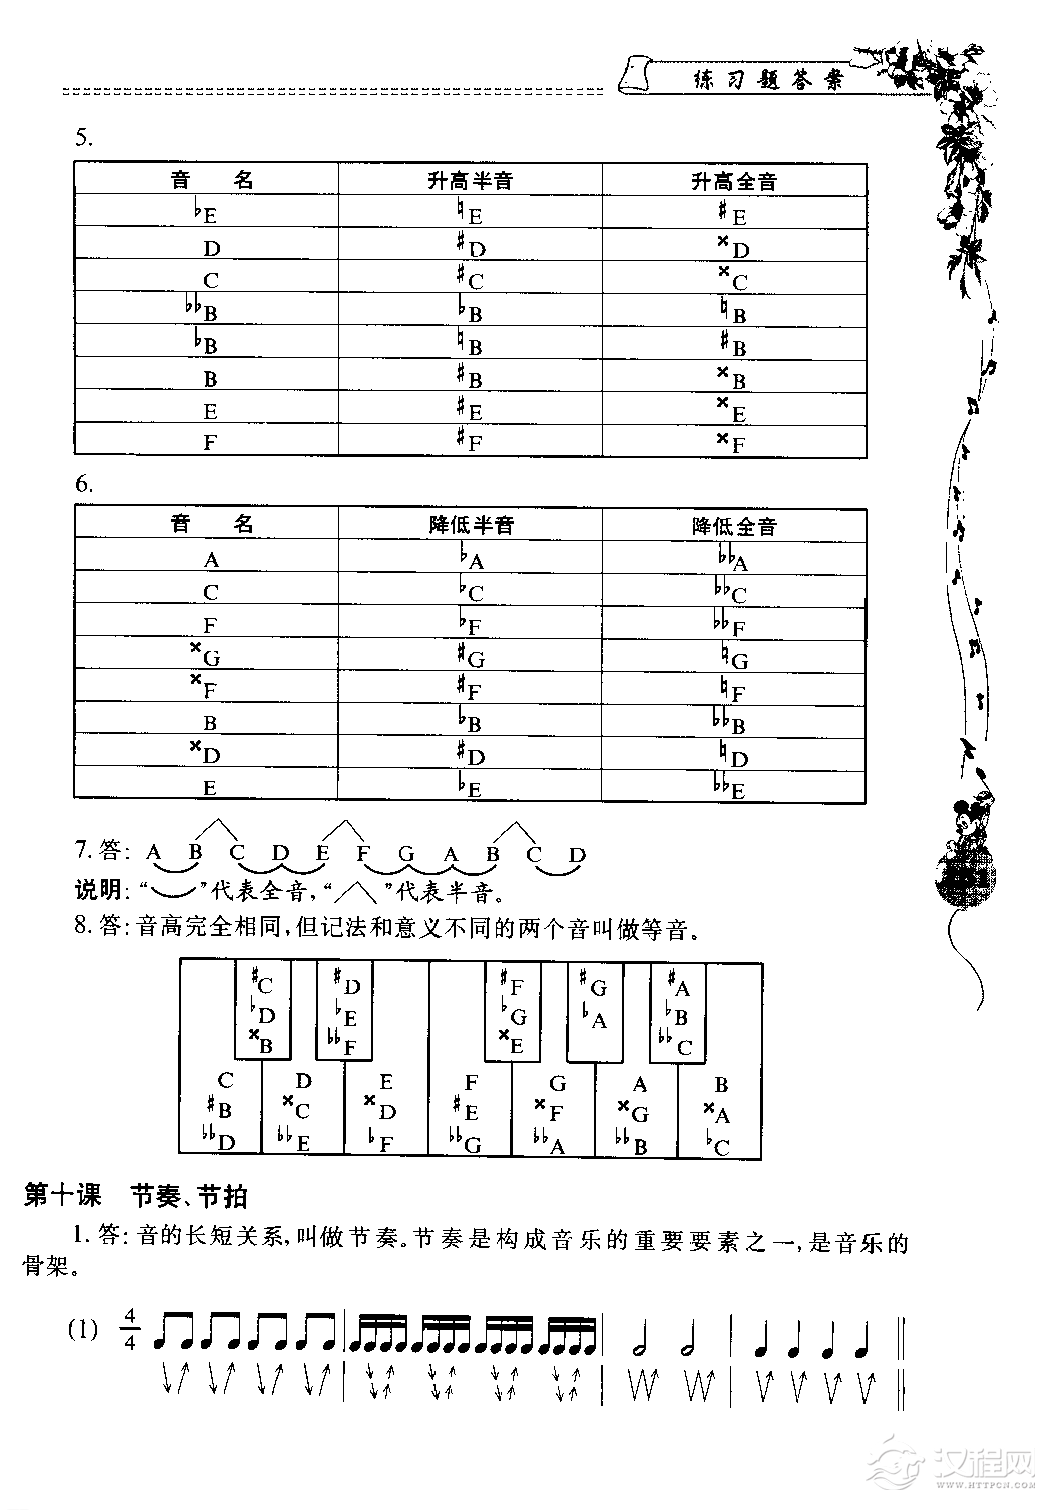 练习题答案
5.
音 名 升高半音 升高全音
♭E ♮E ♯E
D ♯D ×D
C ♯C ×C
♭♭B ♭B ♮B
♭B ♮B ♯B
B ♯B ×B
E ♯E ×E
F ♯F ×F
6.
音 名 降低半音 降低全音
A ♭A ♭♭A
C ♭C ♭♭C
F ♭F ♭♭F
×G ♯G ♮G
×F ♯F ♮F
B ♭B ♭♭B
×D ♯D ♮D
E ♭E ♭♭E
7. 答: A B C D E F G A B C D
说明: “ ”代表全音,“ ”代表半音。
8. 答: 音高完全相同,但记法和意义不同的两个音叫做等音。
♯C ♯D ♯F ♯G ♯A
♭D ♭E ♭G ♭A ♭B
×B ♭♭F ×E ♭♭C
C D E F G A B
♯B ×C ×D ♯E ×F ×G ×A
♭♭D ♭♭E ♭F ♭♭G ♭♭A ♭♭B ♭C
第十课 节奏、节拍
1. 答: 音的长短关系,叫做节奏。节奏是构成音乐的重要要素之一,是音乐的
骨架。
(1) 4/4
汉程网
WWW.HTTPCN.COM